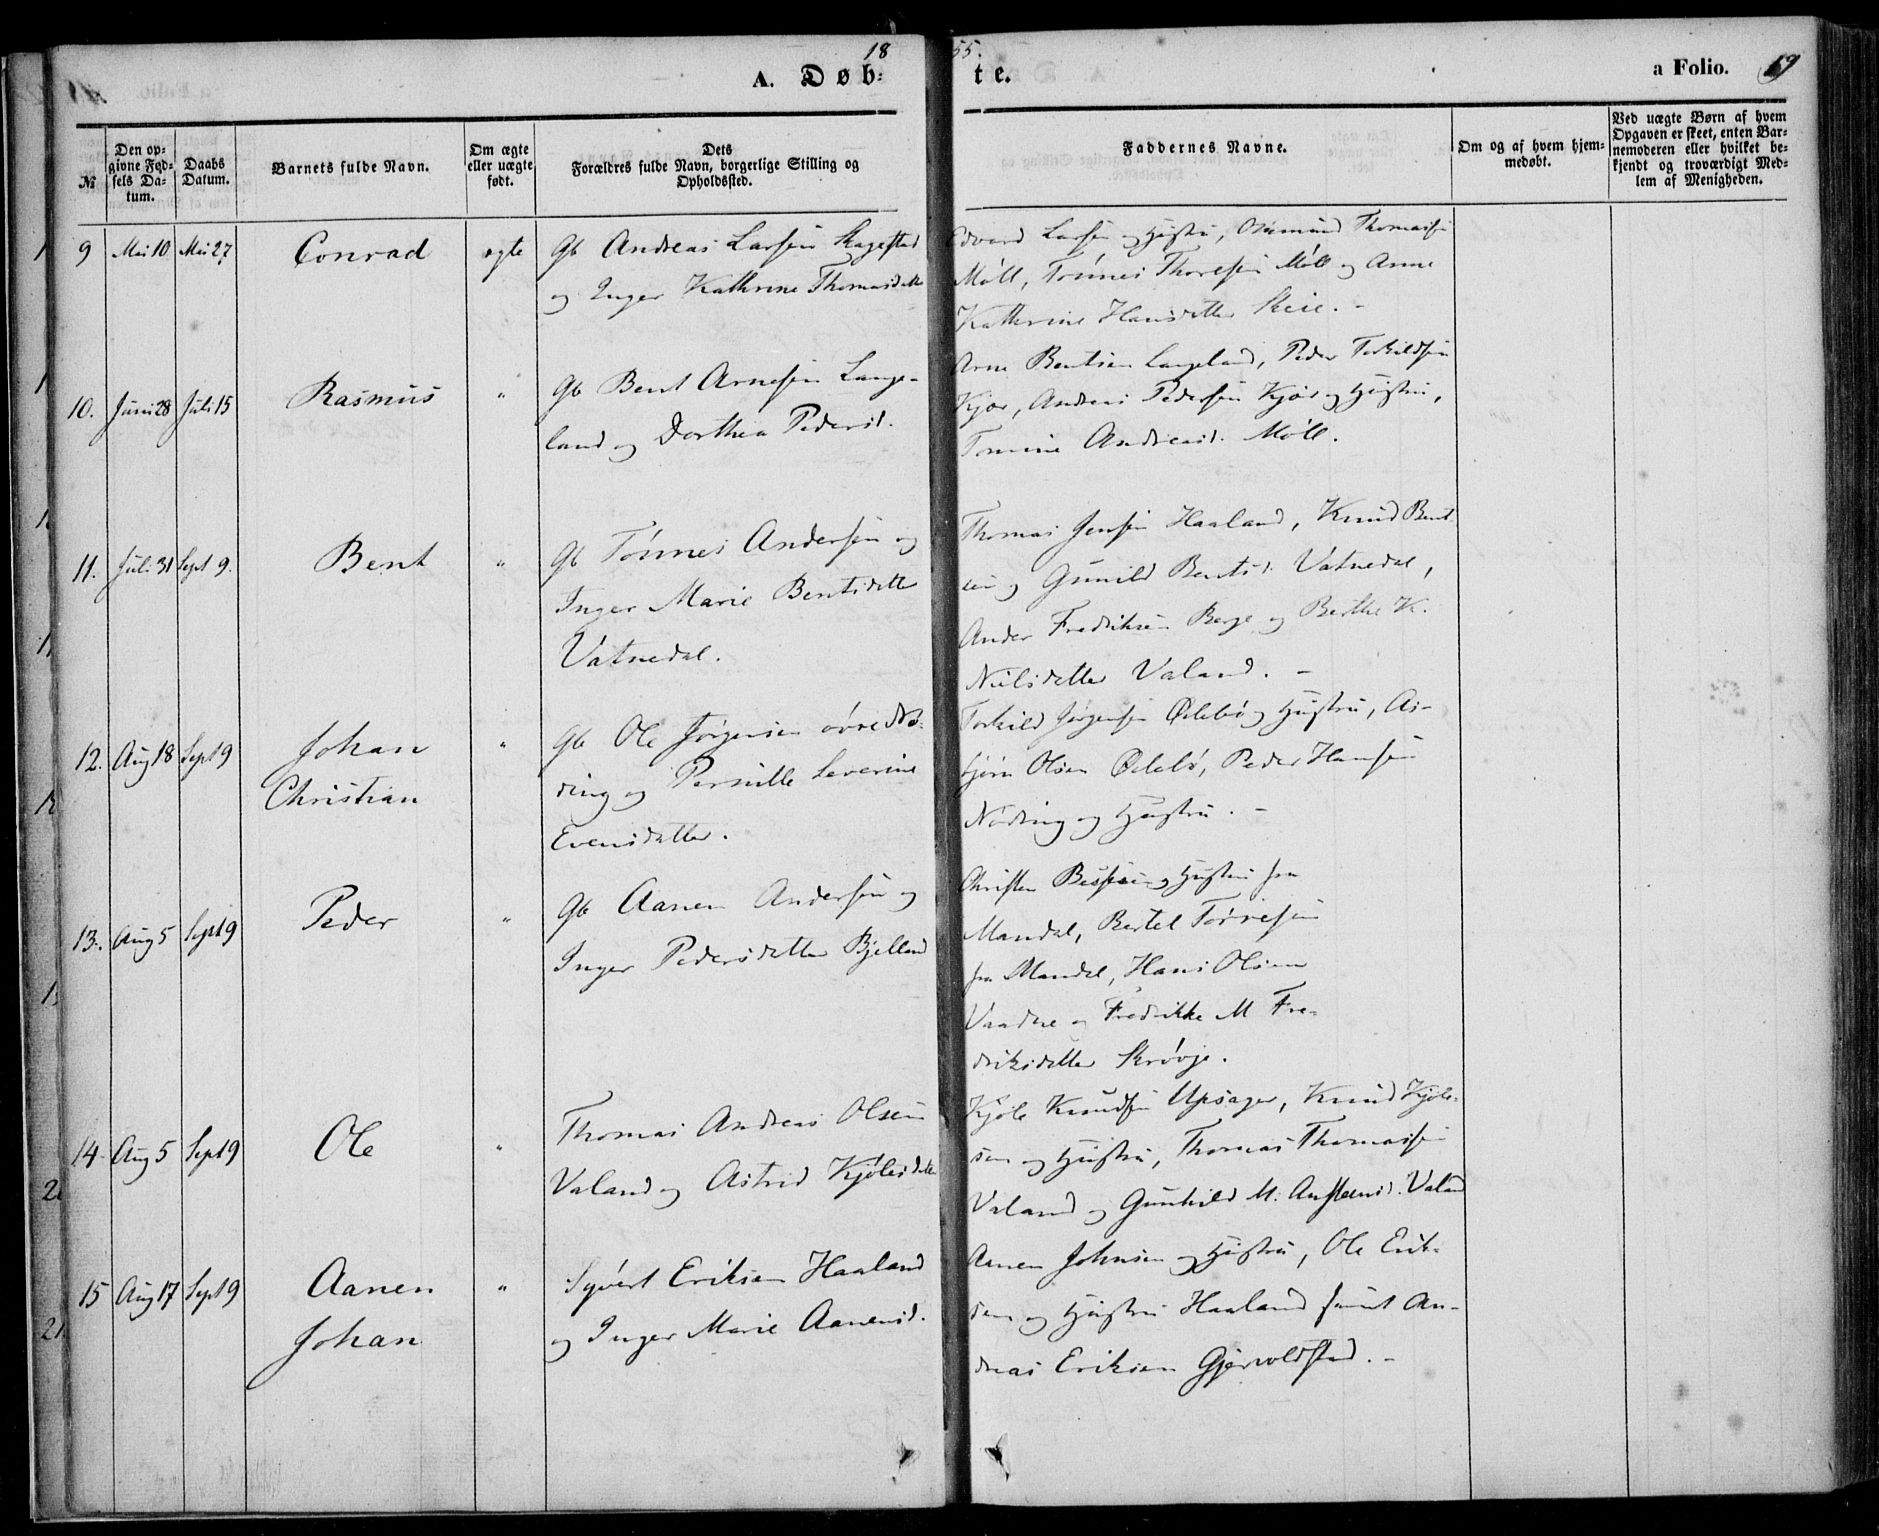 18 55.
A. Døb- te.
a Folio. 69
№
Den op-
givne Fød-
sels Da-
tum.
Daabs
Datum.
Barnets fulde Navn.
Om ægte
eller uægte
født.
Dets
Forældres fulde Navn, borgerlige Stilling og
Opholdssted.
Faddernes Navne.
Om og af hvem hjem-
medøbt.
Ved uægte Børn af hvem
Opgaven er skeet, enten Bar-
nemoderen eller hvilket be-
kjendt og troværdigt Med-
lem af Menigheden.
9 Mai 10 Mai 27 Conrad ægte Gb Andreas Larsen Skagestad
og Inger Kathrine Thomasdatt
Edvard Larsen og Hustru, Thomassen
Möll, Tönnes Thorsen Möll og Anne
Kathrine Hansdatter Skeie. -
10. Juni 28 Juli 15 Rasmus " Gb Bent Arnesen Lange-
land og Dorthea Pedersd.
Arne Bentsen Langeland, Peder Terkildsen
Kjær, Andreas Pedersen Kjær og Hustru,
Tomine Andreasd. Möll.
11. Juli 31 Sept 9. Bent " Gb Tönnes Andersen og
Inger Marie Bentsdatt
Vatnedal.
Thomas Jensen Haaland, Knud Bent
sen og Gunild Bentsd. Vatnedal,
Ander Fredriksen Berge og Berthe K.
Nielsdatter Valand. -
12. Aug 18 Sept 9 Johan
Christian
" Gb Ole Jörgensen övre Nö-
ding og Pernille Severine
Evensdatter.
Torkild Jörgensen Öilebö og Hustru, As-
björn Olsen Öilebö, Peder Hansen
Nöding og Hustru. -
13. Aug 5 Sept 9 Peder " Gb Aanen Andersen og
Inger Pedersdatter Bjelland
Christen og Hustru fra
Mandal, Bertel Törrisen
fra Mandal, Hans Olsen
Vaadne og Fredrikke M Fre-
driksdatter Skröoje.
14 Aug 5 Sept 9 Ole " Thomas Andreas Olsen
Valand og Astrid Kjölesdatt
Kjöle Knudsen Upsager, Knud Kjöle-
sen og Hustru, Thomas Thomassen
Valand og Gunhild M. Anstensd. Valand
15 Aug 17 Sept 9 Aanen
Johan
" Syvert Eriksen Haaland
og Inger Marie Aanensd.
Aanen Johnsen og Hustru, Ole Erik-
sen og Hustru Haaland samt An-
dreas Eriksen Gjervoldstad. -